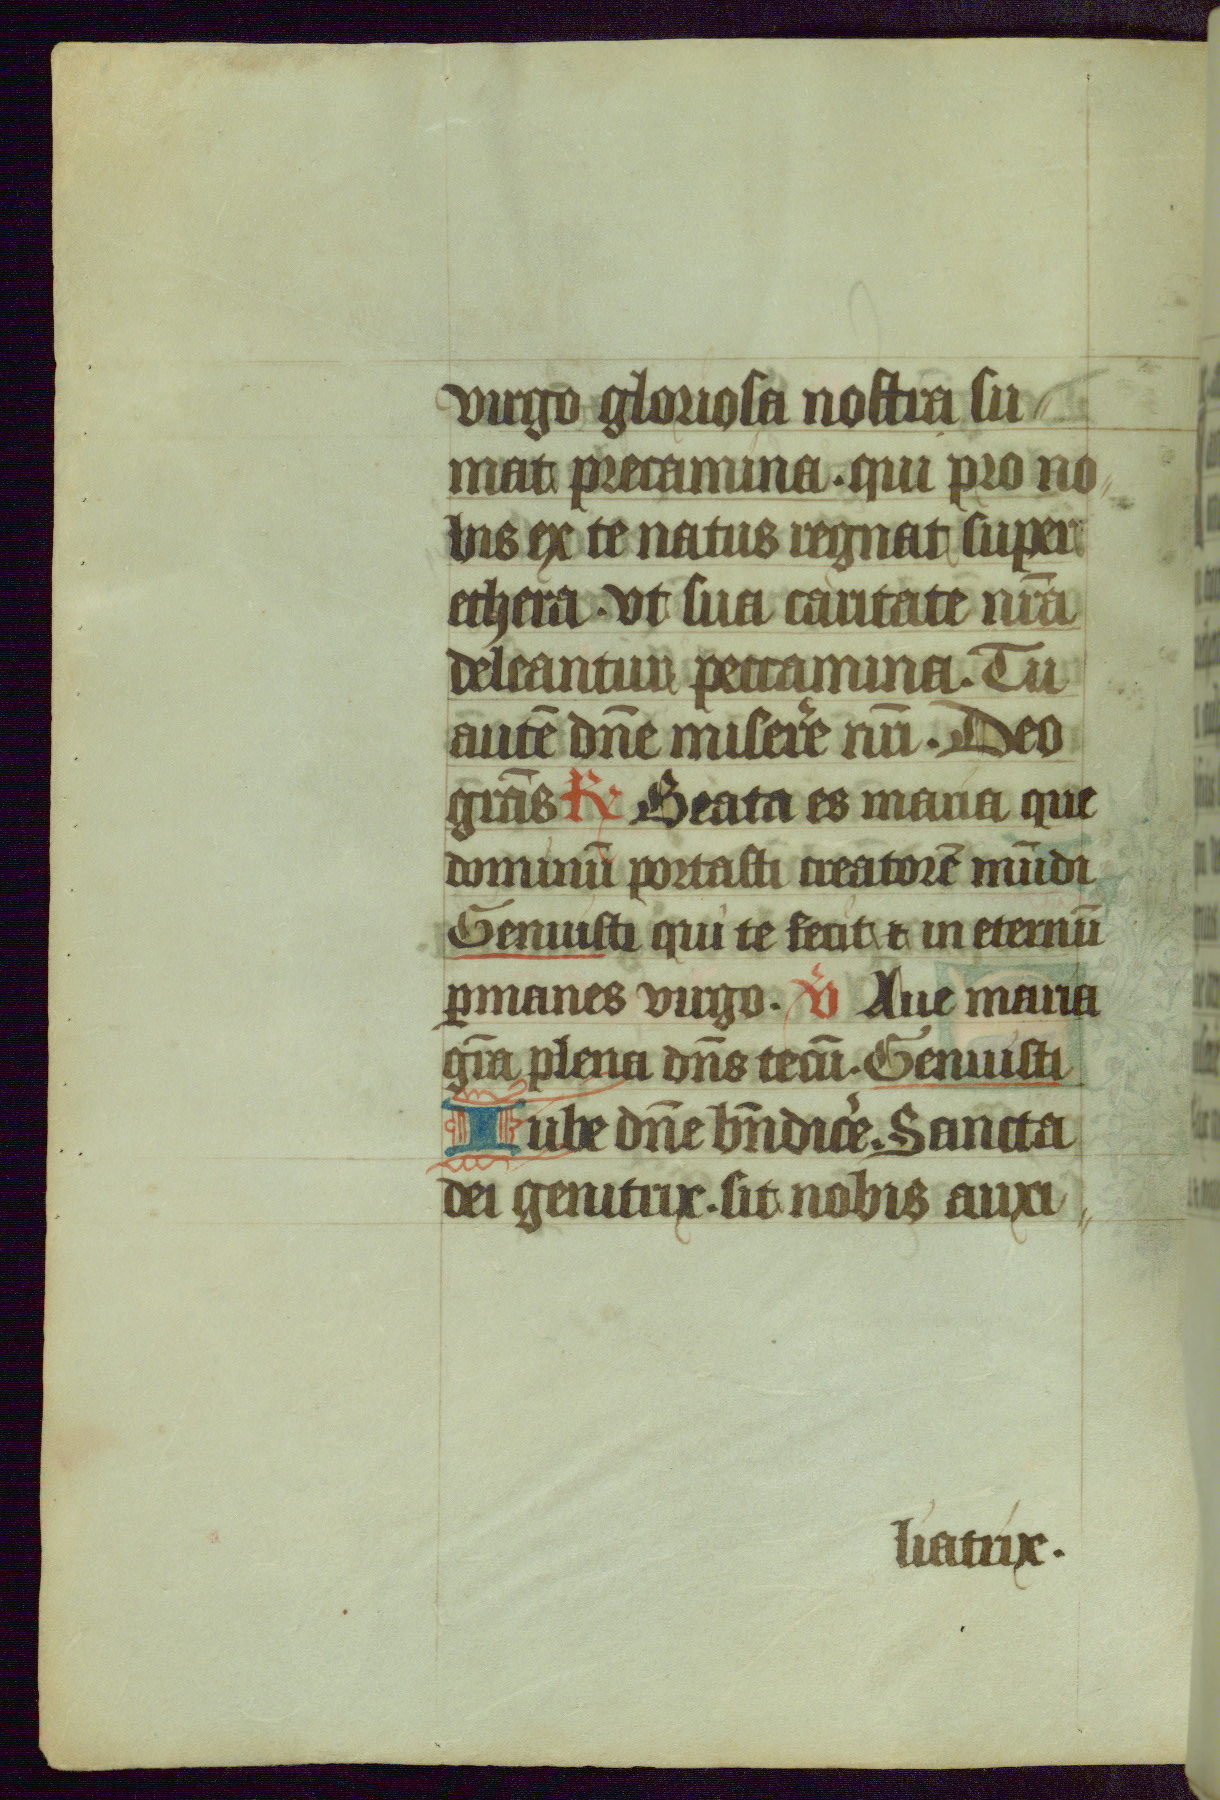 virgo gloriosa nostra su⸗
mat precamina. qui pro no⸗
bis ex te natus regnat super
ethera. vt sua caritate nr̄a
deleantur peccamina. Tu
autē dn̄e miserer̄e nr̄i. Deo
grās ℟ Beata es maria que
dominū portasti creatorē mūdi
Genuisti qui te fecit ⁊ in eternū
ꝑmanes virgo. ℣ Aue maria
gr̄a plena dn̄s tecū. Genuisti
Iube dn̄e bn̄dicē. Sancta
dei genitrix. sit nobis auxi⸗
liatrix.